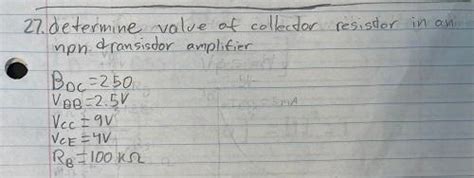 27. determine value of collector resistor in an
npn transisdor amplifier
BDC=250
VBB=2.5V
VCC=9V
VCE=4V
RB=100KΩ